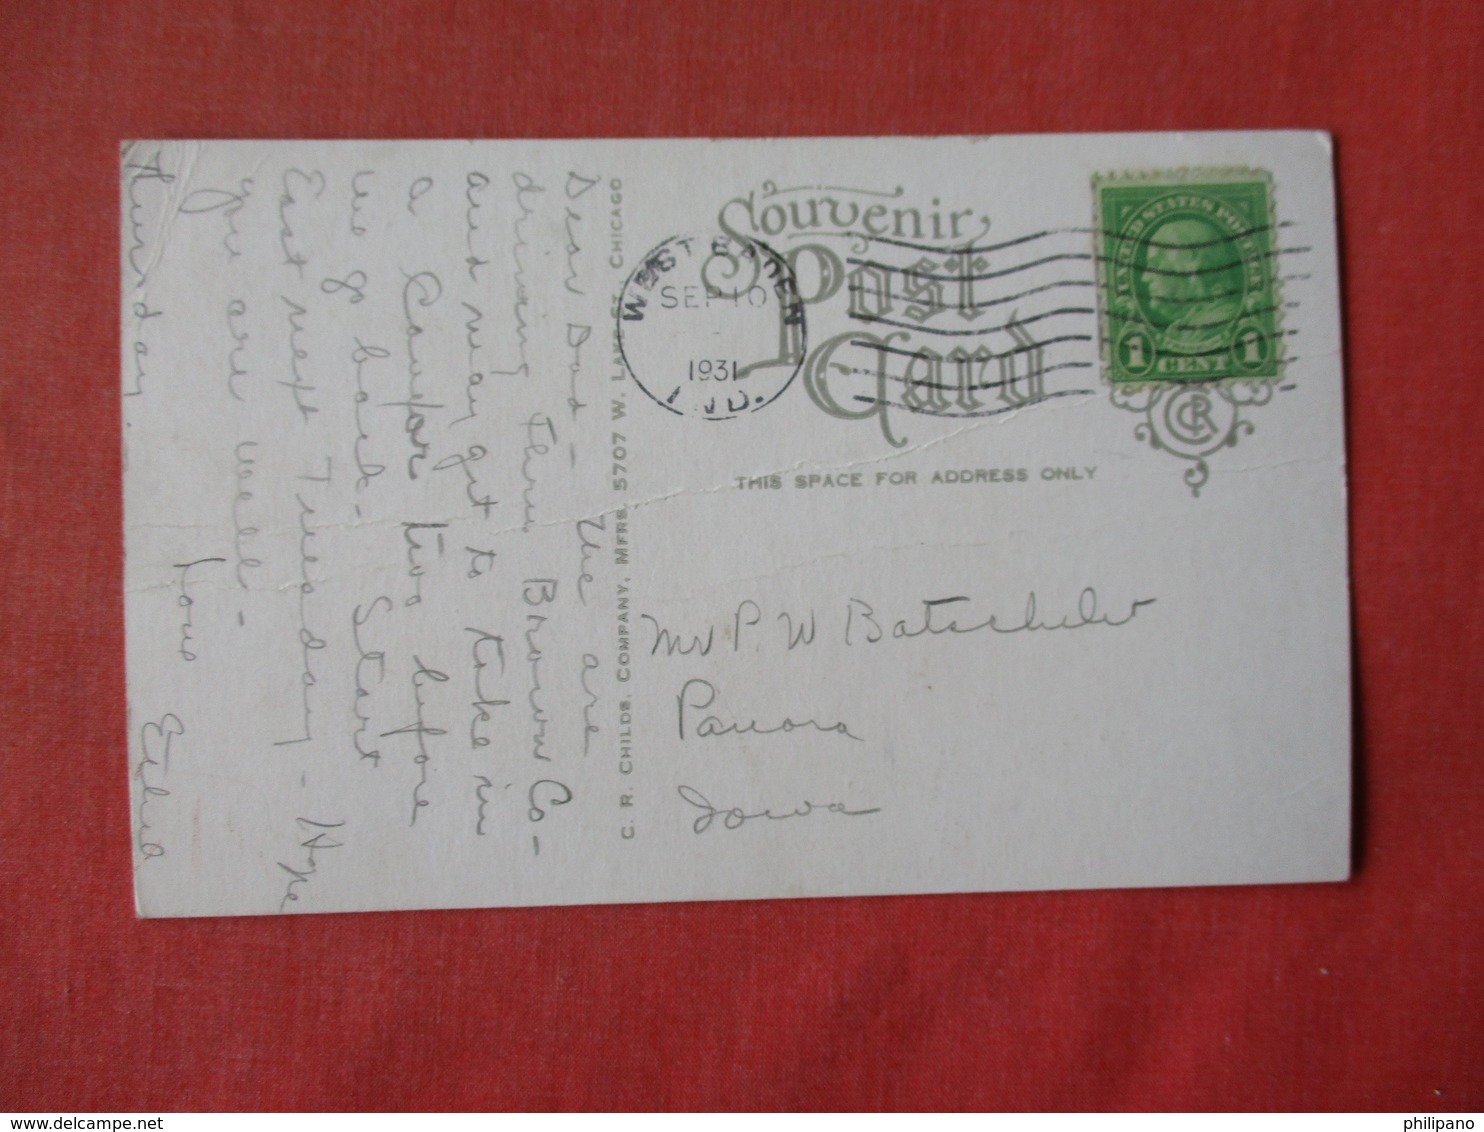 Souvenir
Post
Card
THIS SPACE FOR ADDRESS ONLY
WEST BADEN
SEP 10
1931
IND.
UNITED STATES POSTAGE
1 CENT 1
CRC
Mr P. W Batschelet
Panora
Iowa
C. R. CHILDS, COMPANY, MFRS. 5707 W. LAKE ST. CHICAGO
Dear Dad - We are
driving thru Brown Co-
and may get to take in
a Convor two before
we go back. Start
East next Tuesday - Hope
you are well -
Love
Thursday. Edna
www.delcampe.net
philipano